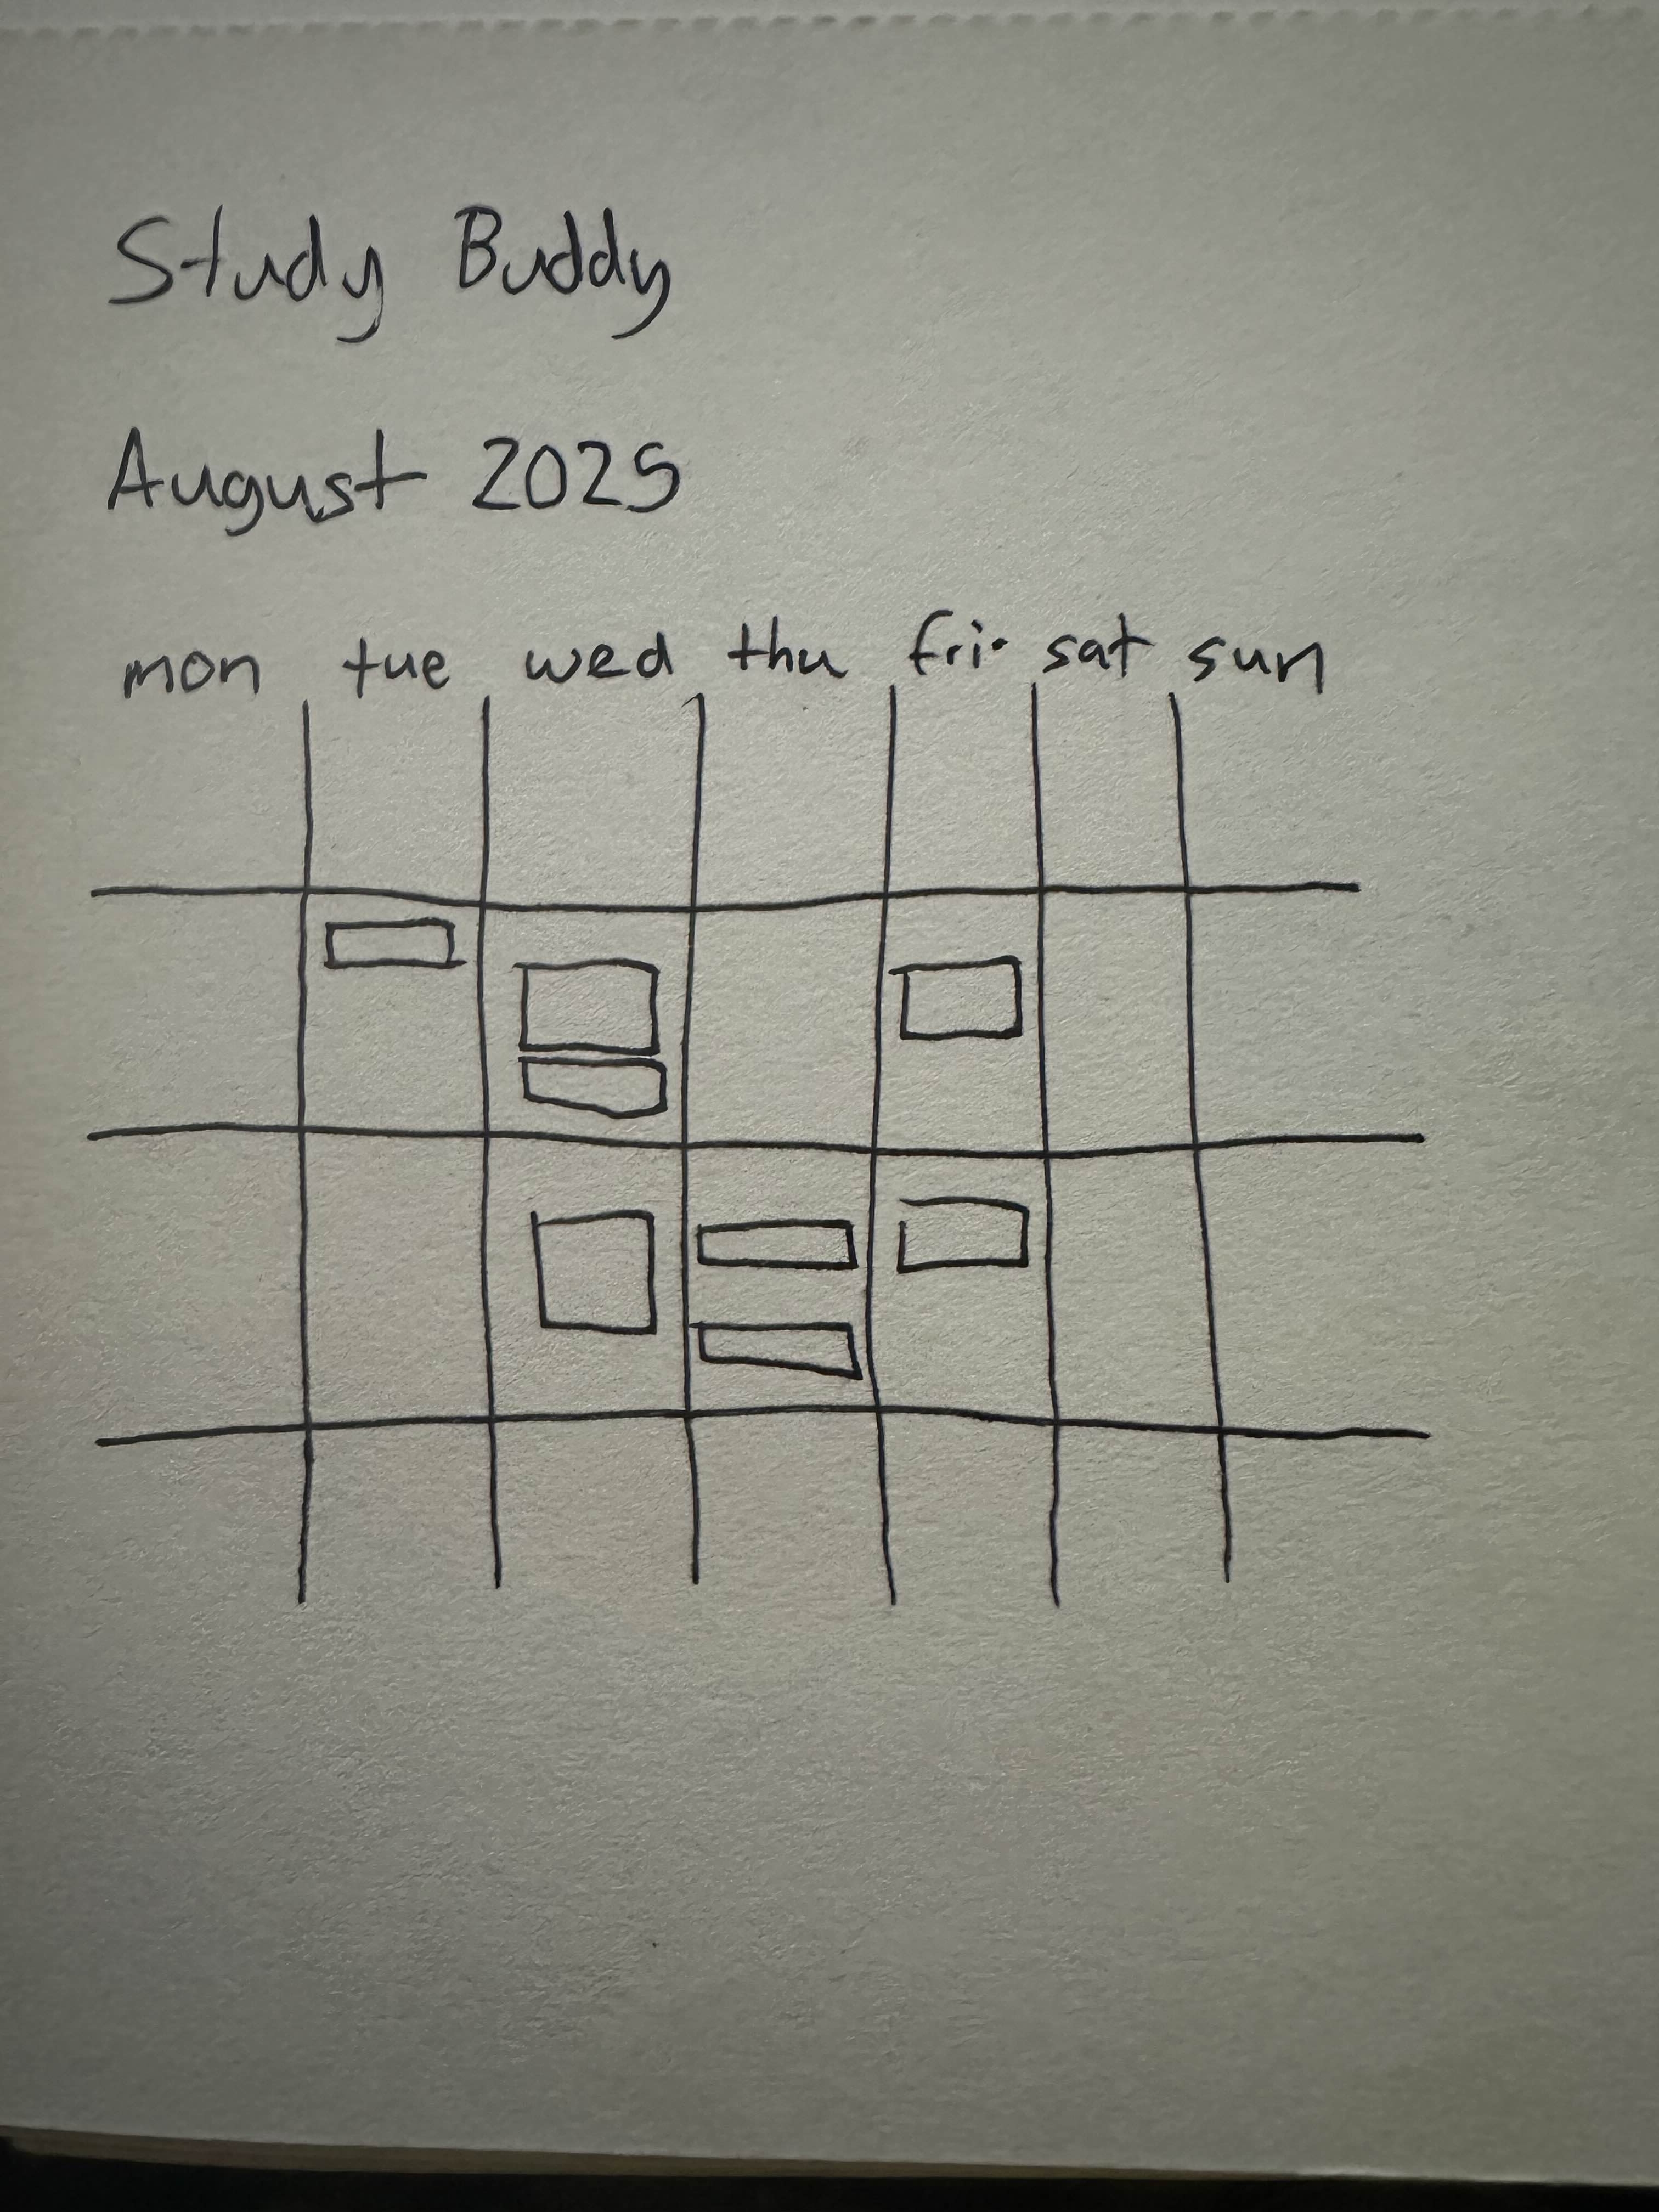 Study Buddy
August 2025
mon tue wed thu fri. sat sun